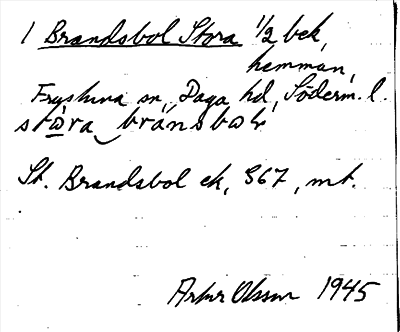 1 Brandsbol Stora 1/2 bek.
hemman,
Frustuna sn, Daga hd, Söderm. l.
stɷ̄ra bránsbɷⱡ
St. Brandsbol ek, 367, mt.
Artur Olsson 1945